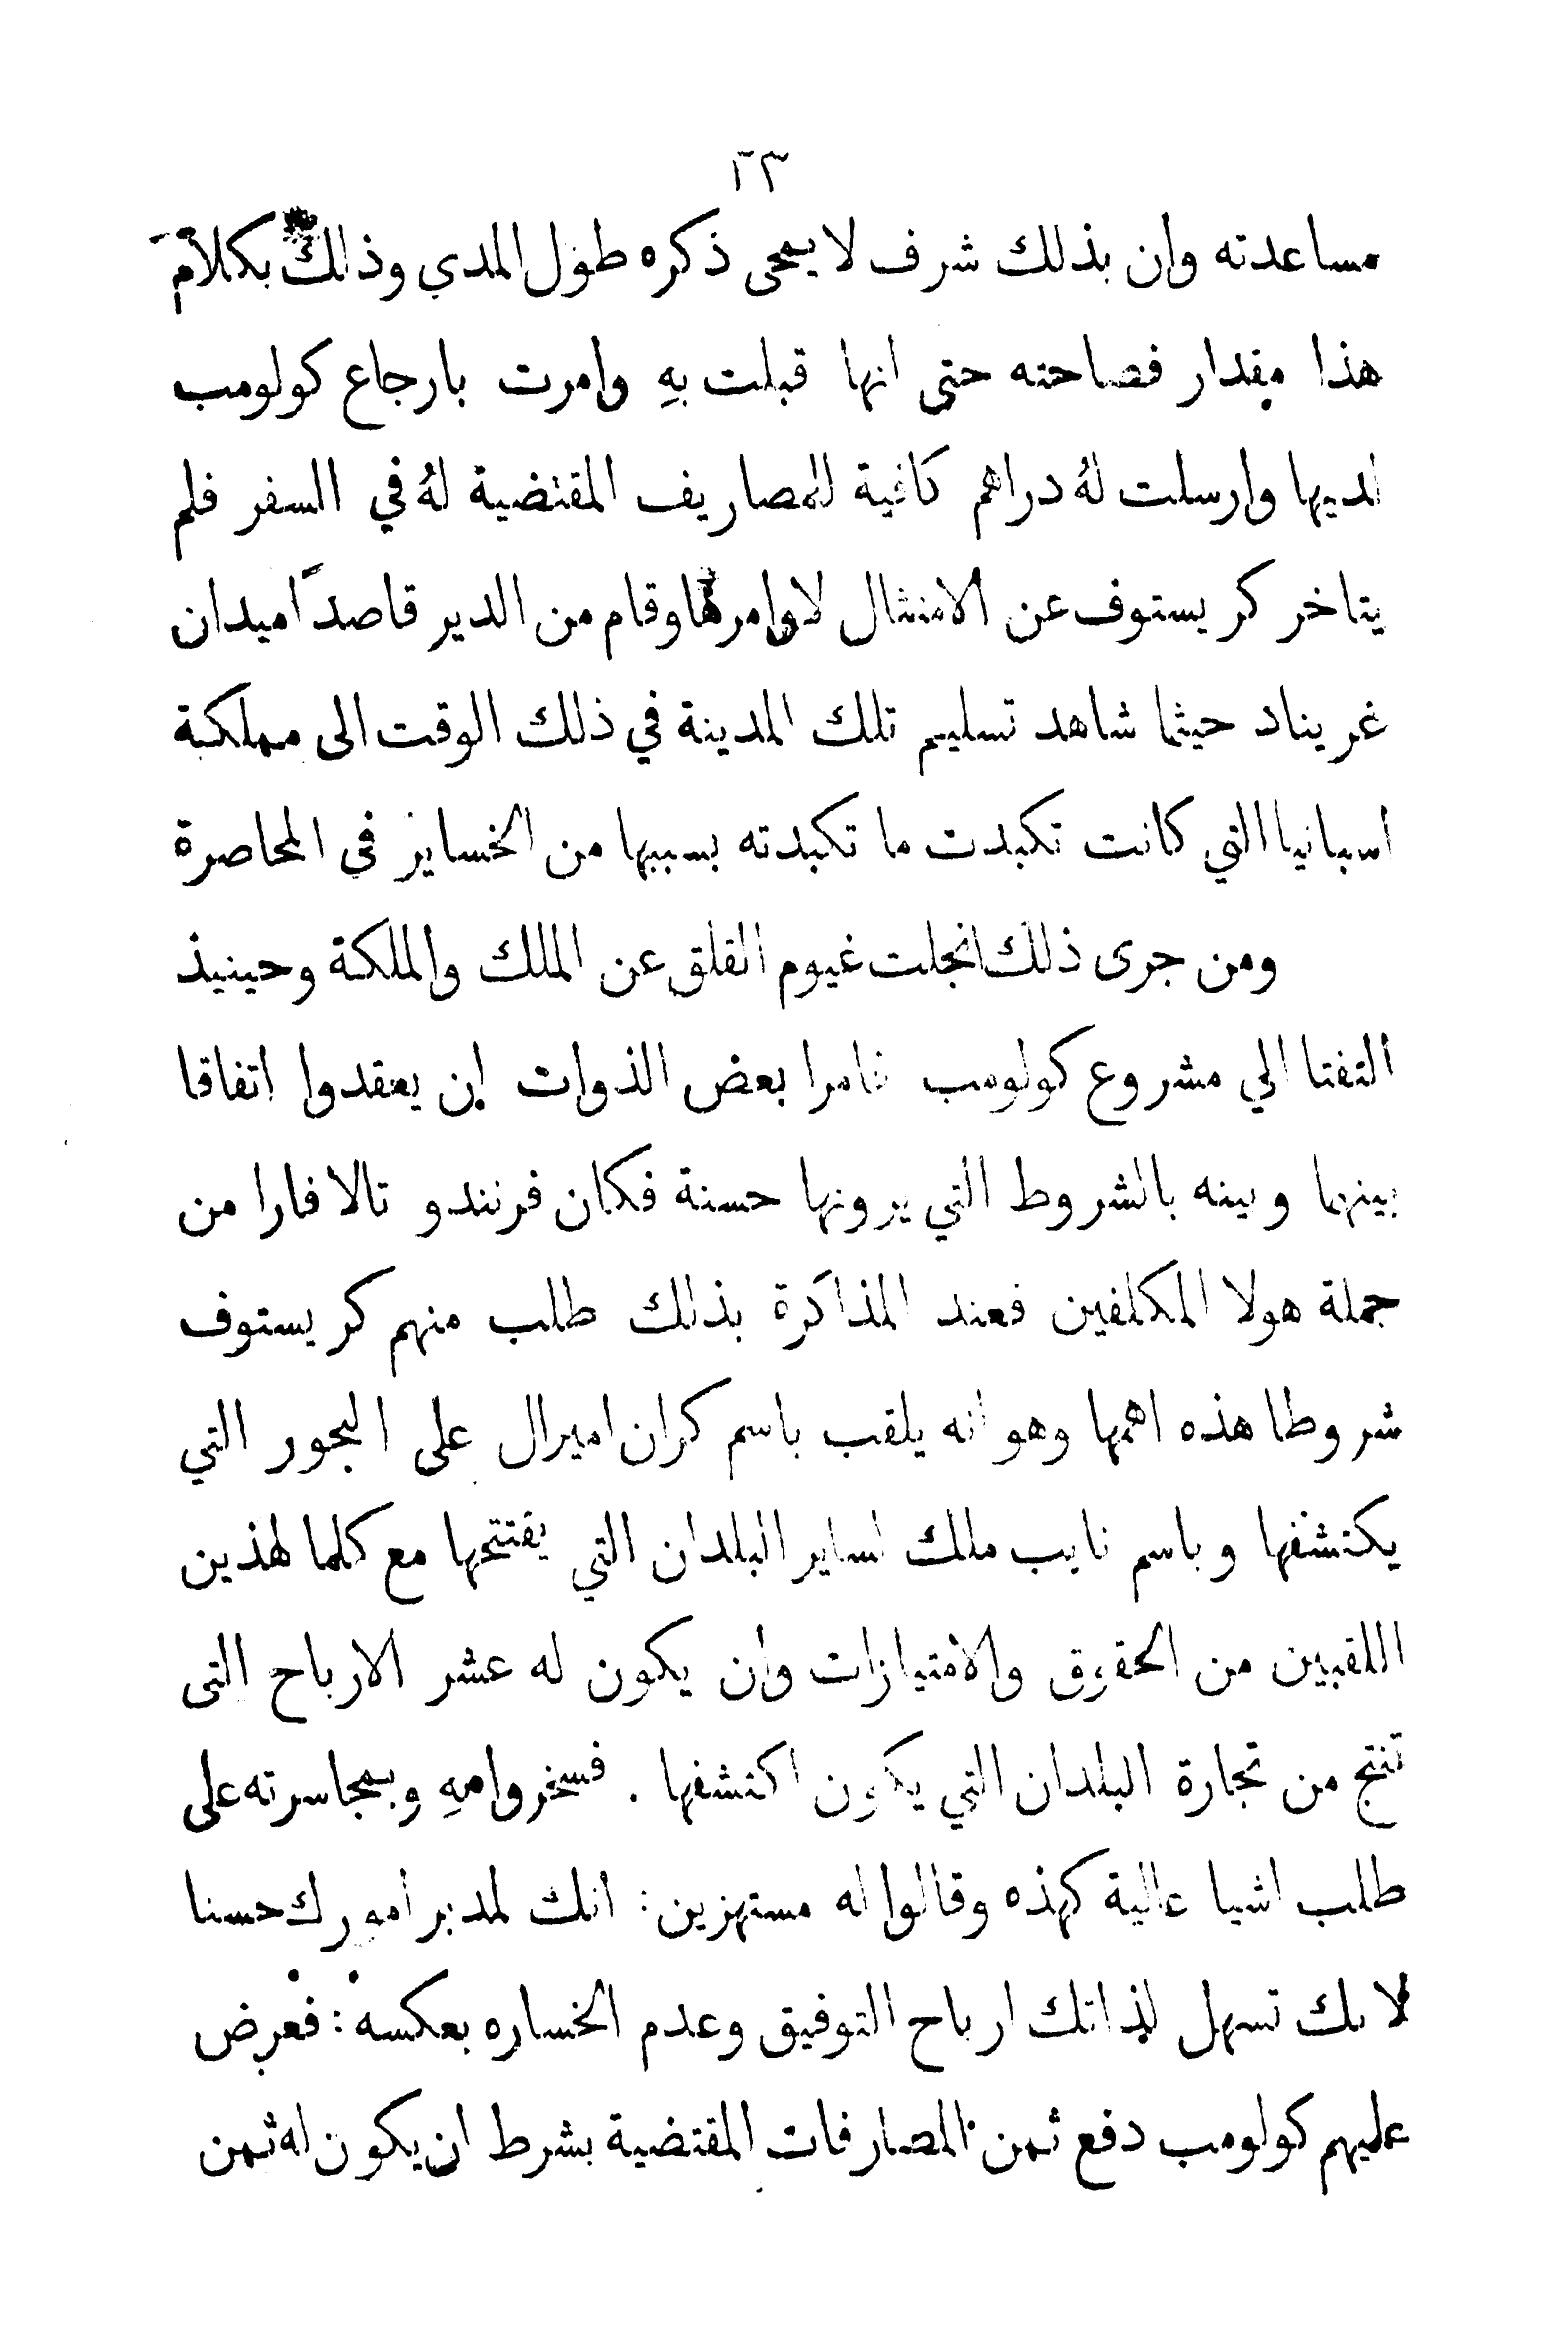 ٢٣
مساعدته وان بذلك شرف لا يمحى ذكره طول المدي وذلك بكلام
هذا مقدار فصاحته حتى انها قبلت بهِ وامرت بارجاع كولومب
لديها وارسلت لهُ دراهم كافية للمصاريف المقتضية لهُ في السفر فلم
يتاخر كريستوف عن الامتثال لاوامرها وقام من الدير قاصداً ميدان
غريناد حيثما شاهد تسليم تلك المدينة في ذلك الوقت الى مملكة
اسبانيا التي كانت تكبدت ما تكبدته بسببها من الخساير في المحاصرة
ومن جرى ذلك انجلت غيوم القلق عن الملك والملكة وحينيذ
التفتا الي مشروع كولومب فامرا بعض الذوات ان يعقدوا اتفاقا
بينهما وبينه بالشروط التي يرونها حسنة فكان فرنندو تالافارا من
جملة هولا المكلفين فعند المذاكرة بذلك طلب منهم كريستوف
شروطا هذه اهمها وهو انه يلقب باسم كران اميرال على البحور التي
يكتشفها وباسم نايب ملك لساير البلدان التي يفتتحها مع كلما لهذين
اللقبين من الحقوق والامتيازات وان يكون له عشر الارباح التى
تنتج من تجارة البلدان التي يكون اكتشفها . فسخروا بهِ وبمجاسرته على
طلب اشيا عالية كهذه وقالوا له مستهزين : انك لمدبر امورك حسنا
لانك تسهل لذاتك ارباح التوفيق وعدم الخساره بعكسه : فعرض
عليهم كولومب دفع ثمن المصارفات المقتضية بشرط ان يكون له ثمن